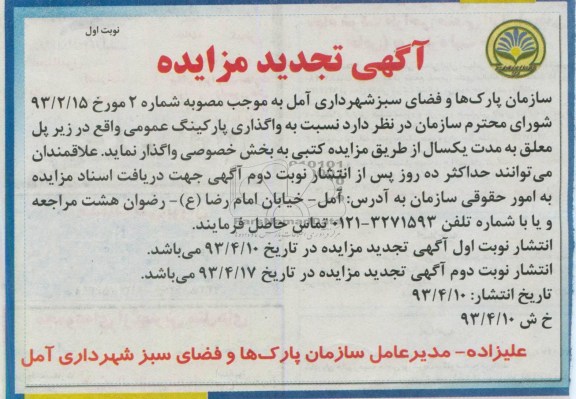 نوبت اول
آگهی تجدید مزایده
سازمان پارک‌ها و فضای سبزشهرداری آمل به موجب مصوبه شماره ۲ مورخ ۹۳/۲/۱۵
شورای محترم سازمان در نظر دارد نسبت به واگذاری پارکینگ عمومی واقع در زیر پل
معلق به مدت یکسال از طریق مزایده کتبی به بخش خصوصی واگذار نماید. علاقمندان
می‌توانند حداکثر ده روز پس از انتشار نوبت دوم آگهی جهت دریافت اسناد مزایده
به امور حقوقی سازمان به آدرس: آمل- خیابان امام رضا (ع)- رضوان هشت مراجعه
و یا با شماره تلفن ۳۲۷۱۵۹۳-۰۱۲۱ تماس حاصل فرمایند.
انتشار نوبت اول آگهی تجدید مزایده در تاریخ ۹۳/۴/۱۰ می‌باشد.
انتشار نوبت دوم آگهی تجدید مزایده در تاریخ ۹۳/۴/۱۷ می‌باشد.
تاریخ انتشار: ۹۳/۴/۱۰
خ ش ۹۳/۴/۱۰
علیزاده- مدیرعامل سازمان پارک‌ها و فضای سبز شهرداری آمل